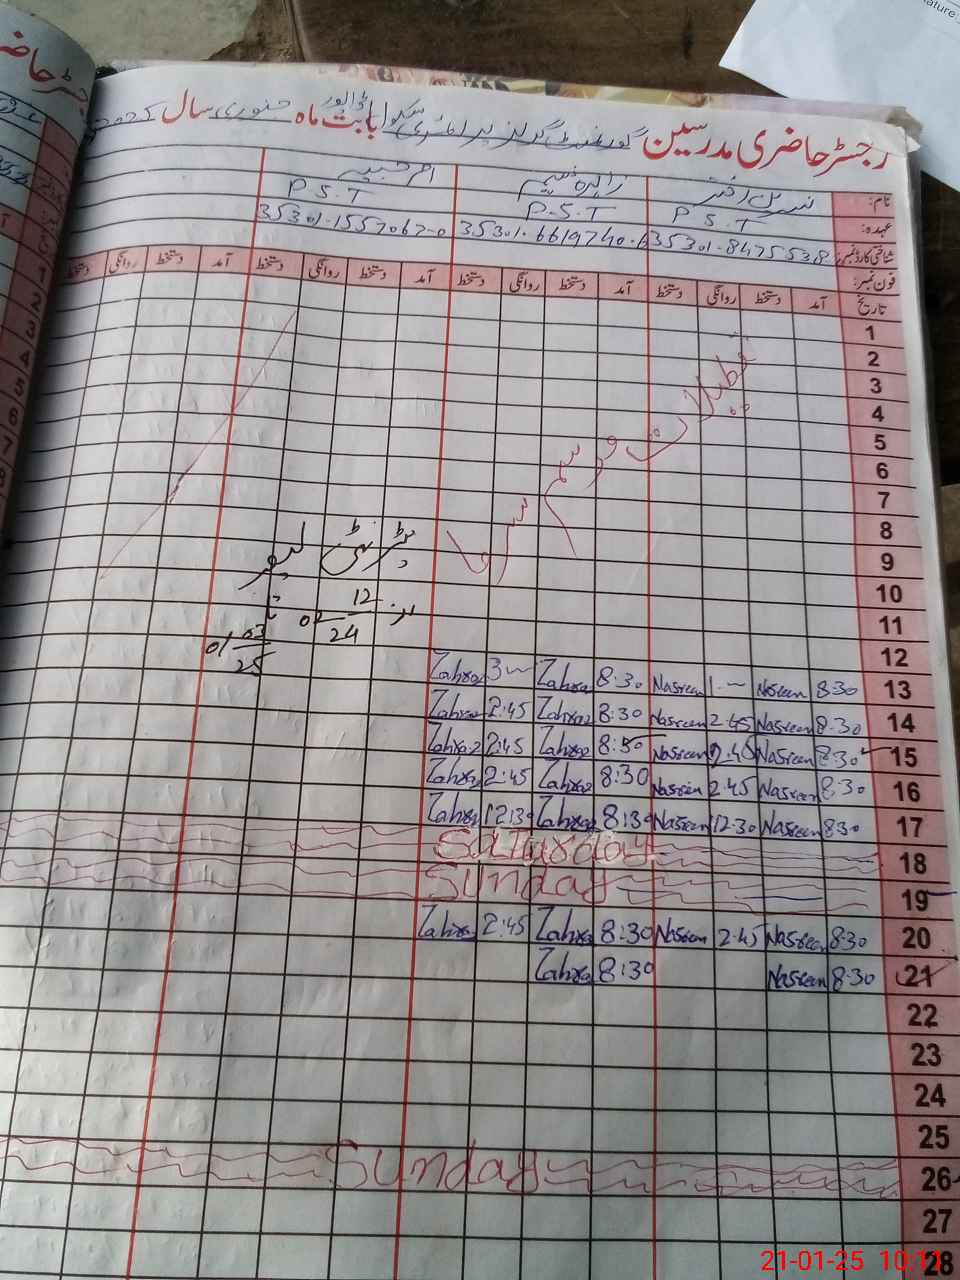 رجسٹر حاضری مدرسین گورنمنٹ گرلز پرائمری سکول بابت ماہ جنوری سال 2025
نام: نسرین اختر زاہرہ نسیم ام حبیبہ
عہدہ: P.S.T P.S.T P.S.T
شناختی کارڈ نمبر: 35301-8475538 35301-6619740-6 35301-1557067-0
فون نمبر:
تاریخ آمد دستخط روانگی دستخط آمد دستخط روانگی دستخط آمد دستخط روانگی دستخط آمد دستخط روانگی دستخط
1
2
3
4
5
6
7
8
9
10
11
12
تعطیلات موسم سرما
میٹرنٹی لیو
02 12 24
تا
01 03 25
13 8:30 Nasreen 1 Nasreen 8:30 Zahra 3 Zahra
14 8:30 Nasreen 2:45 Nasreen 8:30 Zahra 2:45 Zahra
15 8:30 Nasreen 2:45 Nasreen 8:30 Zahra 2:45 Zahra
16 8:30 Nasreen 2:45 Nasreen 8:30 Zahra 2:45 Zahra
17 8:30 Nasreen 12:30 Nasreen 8:30 Zahra 12:30 Zahra
18 Saturday
19 Sunday
20 8:30 Nasreen 2:45 Nasreen 8:30 Zahra 2:45 Zahra
21 8:30 Nasreen 8:30 Zahra
22
23
24
25
26 Sunday
27
28
21-01-25 10:11